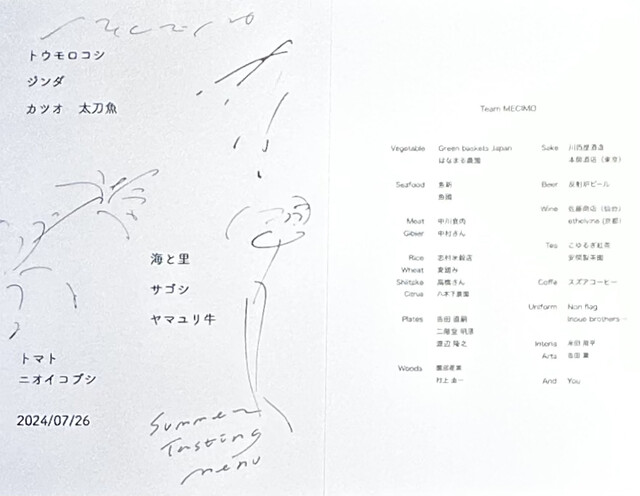 トウモロコシ
ジンダ
カツオ 太刀魚
海と里
サゴシ
ヤマユリ牛
トマト
ニオイコブシ
2024/07/26
Summer
Tasting
menu
Team MECIMO
Vegetable Green baskets Japan
はなまる農園
Seafood 魚新
魚國
Meat 中川食肉
Gibier 中村さん
Rice 志村米穀店
Wheat
Shiitake 高橋さん
Citrus 八木下農園
Plates 吉田 直嗣
二階堂 明弘
渡辺 隆之
Woods
村上 圭一
Sake 川西屋酒造
本間酒店（東京）
Beer 反射炉ビール
Wine
ethelvine (京都)
Tea こゆるぎ紅茶
Coffe スズアコーヒー
Uniform Non flag
inoue brothers…
Interia
Arts 吉田 薫
And You